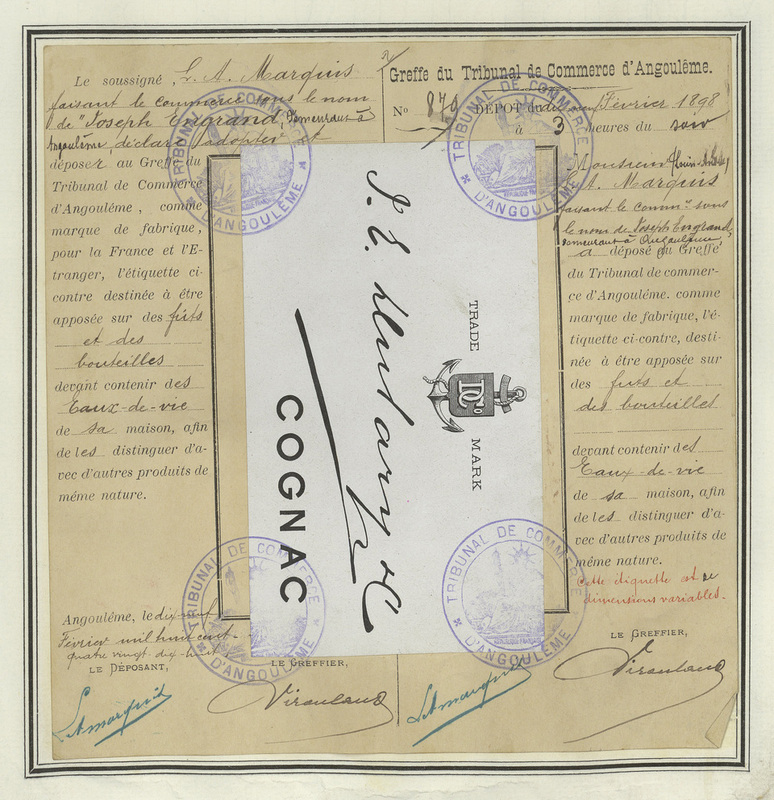 Le soussigné, L. A. Marquis
faisant le commerce sous le nom
de "Joseph Engrand, demeurant à
Angoulême, déclare adopter et
déposer au Greffe du
Tribunal de Commerce
d'Angoulême, comme
marque de fabrique,
pour la France et l'E-
tranger, l'étiquette ci-
contre destinée à être
apposée sur des fûts
et des
bouteilles
devant contenir des
Eaux-de-vie
de sa maison, afin
de les distinguer d'a-
vec d'autres produits de
même nature.
Angoulême, le dix-neuf
Février mil huit cent
quatre vingt-dix-huit
LE DÉPOSANT,
LE GREFFIER,
LAMarquis
TRADE MARK
D Co
COGNAC
Greffe du Tribunal de Commerce d'Angoulême.
No 879 DÉPOT du dix neuf Février 1898
à 3 heures du soir
Monsieur
A. Marquis
faisant le commce sous
le nom de Joseph Engrand,
demeurant à Angoulême,
a déposé au Greffe
du Tribunal de commer-
çe d'Angoulême. comme
marque de fabrique, l'é-
tiquette ci-contre, desti-
née à être apposée sur
des futs et
des bouteilles
devant contenir des
Eaux-de-vie
de sa maison, afin
de les distinguer d'a-
vec d'autres produits de
même nature.
Cette étiquette est de
dimensions variables.
LE GREFFIER,
LAMarquis
TRIBUNAL DE COMMERCE D'ANGOULÊME
TRIBUNAL DE COMMERCE D'ANGOULÊME
TRIBUNAL DE COMMERCE D'ANGOULÊME
TRIBUNAL DE COMMERCE D'ANGOULÊME